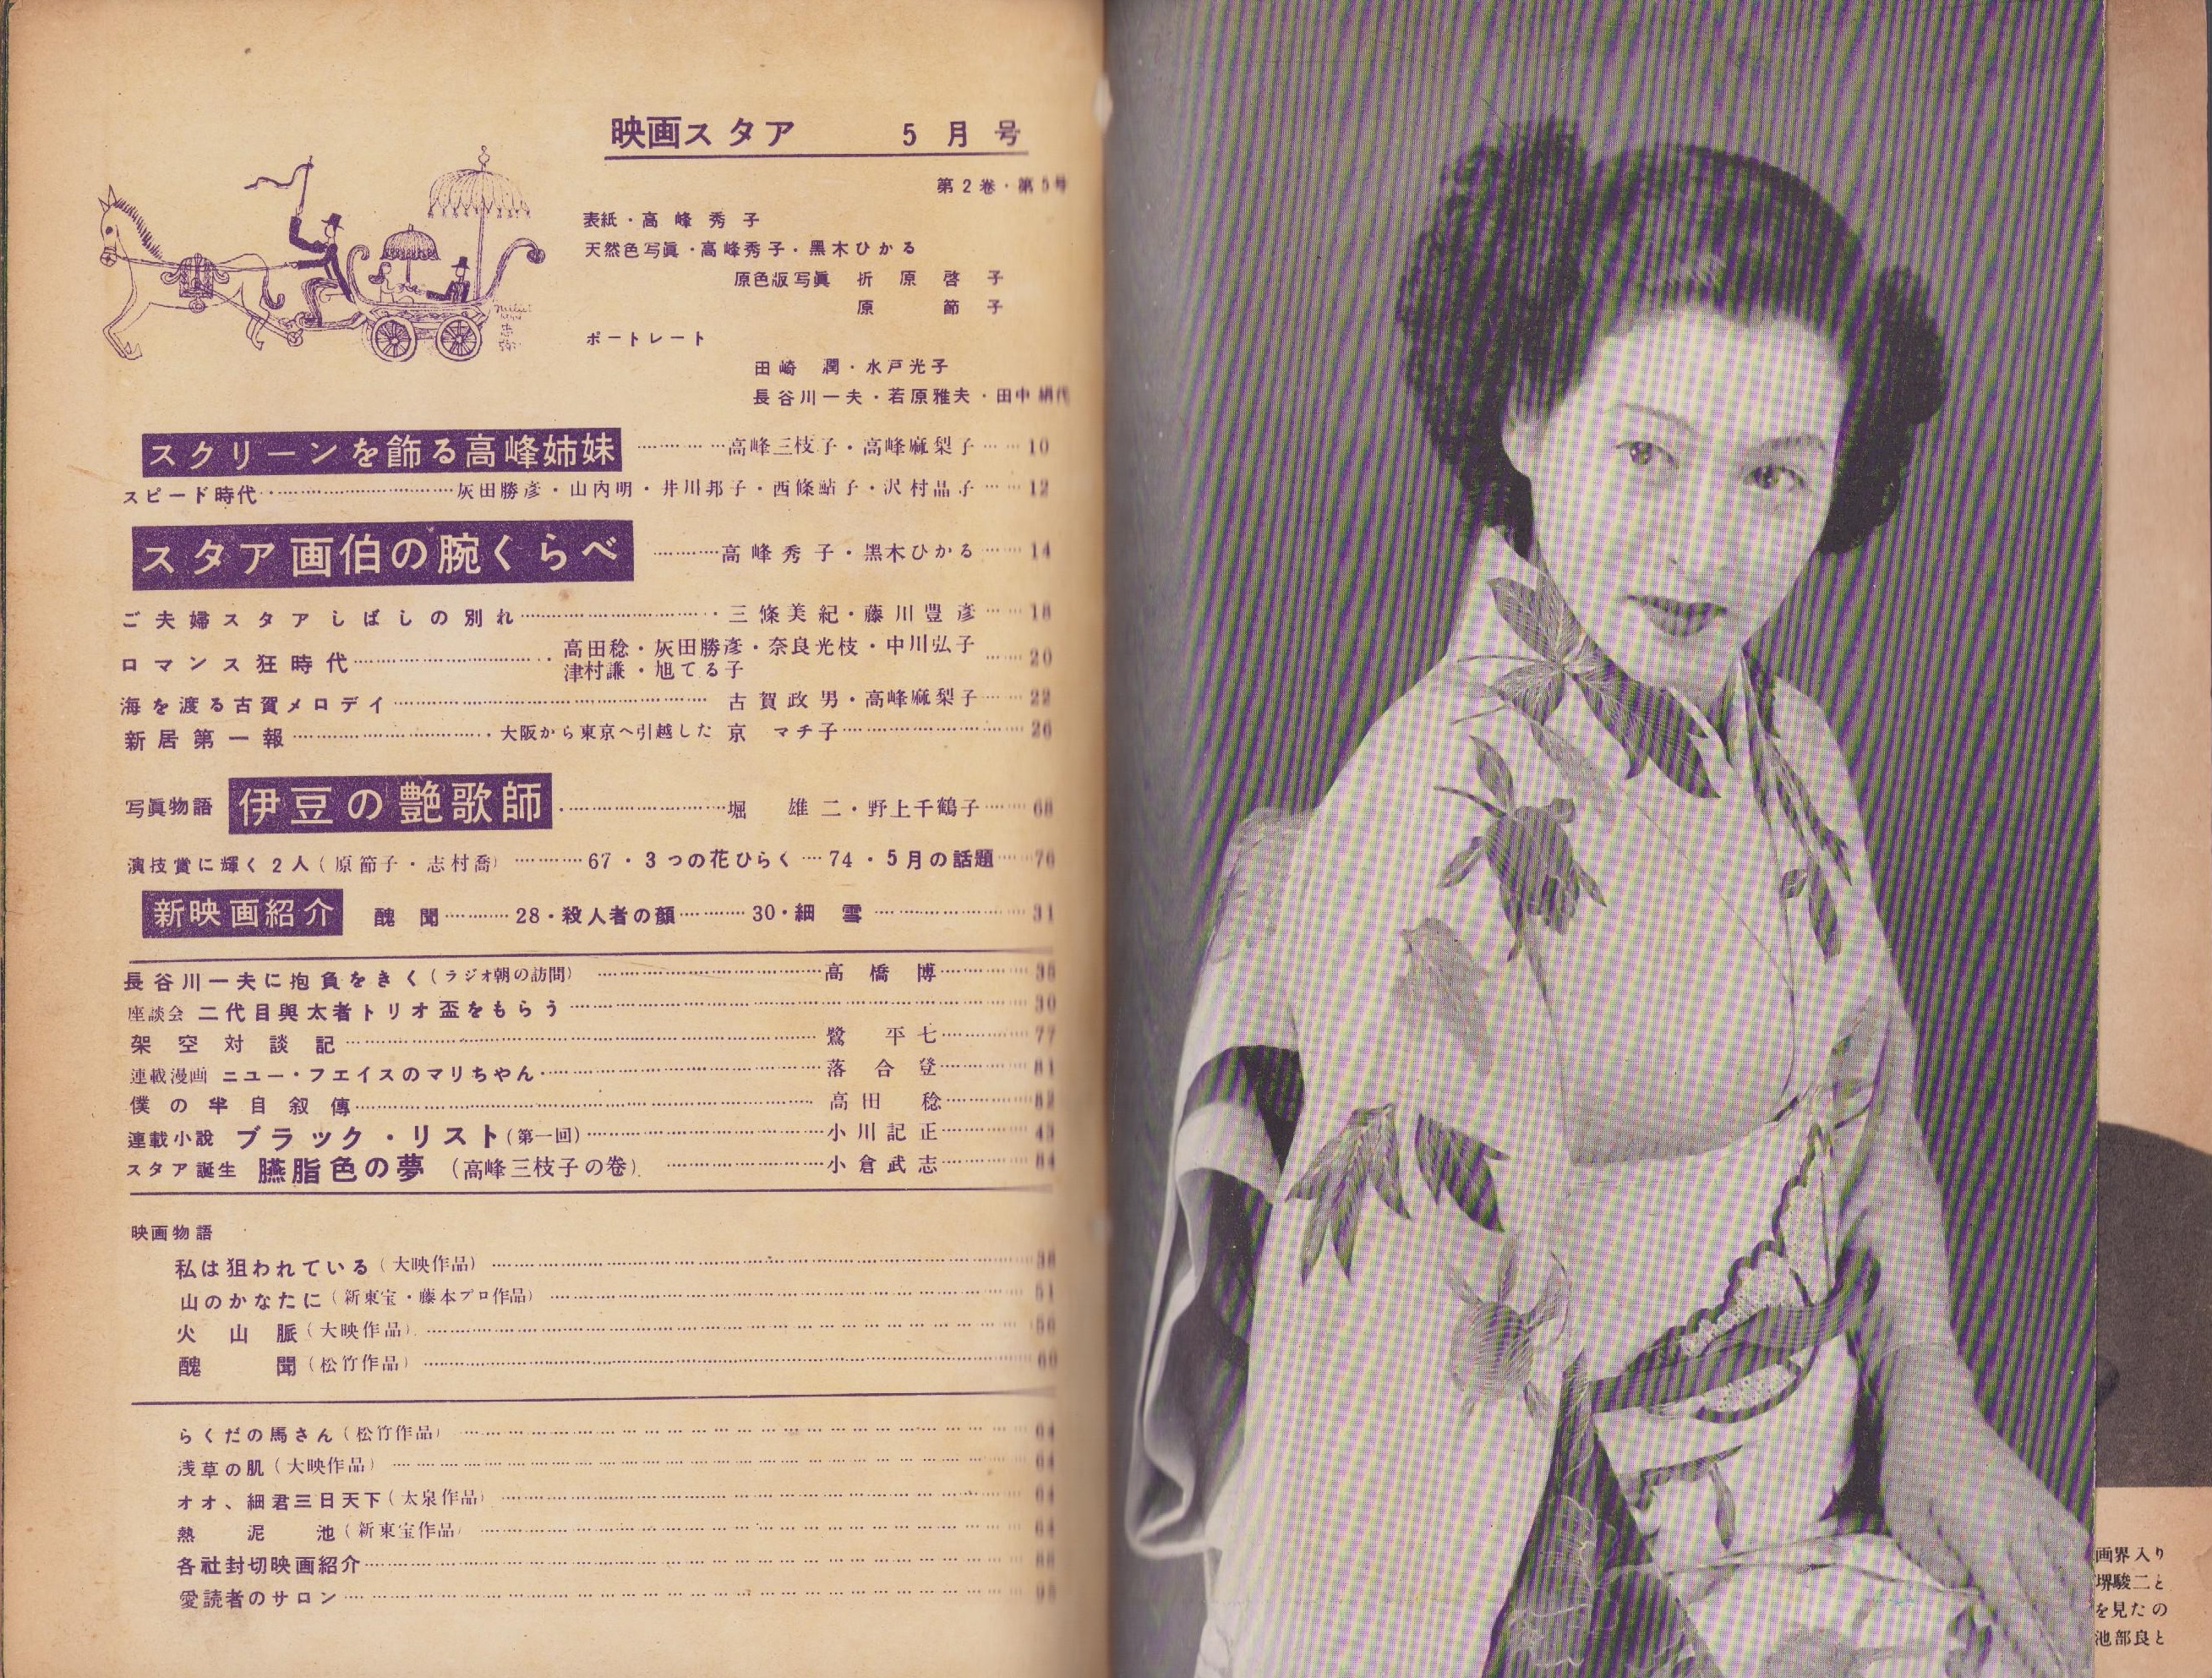 映画スタア 5月号
第2巻・第5号
表紙・高峰秀子
天然色写眞・高峰秀子・黒木ひかる
原色版写眞 折原啓子
原節子
ポートレート
田崎潤・水戸光子
長谷川一夫・若原雅夫・田中絹代
スクリーンを飾る高峰姉妹…………高峰三枝子・高峰麻梨子……10
スピード時代…………灰田勝彦・山内明・井川邦子・西條鮎子・沢村晶子……12
スタア画伯の腕くらべ…………高峰秀子・黒木ひかる……14
ご夫婦スタアしばしの別れ…………三條美紀・藤川豊彦……18
ロマンス狂時代…………高田稔・灰田勝彦・奈良光枝・中川弘子
津村謙・旭てる子……20
海を渡る古賀メロデイ…………古賀政男・高峰麻梨子……22
新居第一報…………大阪から東京へ引越した 京マチ子…………26
写眞物語 伊豆の艶歌師…………堀雄二・野上千鶴子……68
演技賞に輝く2人(原節子・志村喬)…………67・3つの花ひらく……74・5月の話題……76
新映画紹介 醜聞…………28・殺人者の顔…………30・細雪…………31
長谷川一夫に抱負をきく(ラジオ朝の訪問)…………高橋博…………
座談会 二代目與太者トリオ盃をもらう…………
架空対談記…………鷺平七…………77
連載漫画 ニユー・フエイスのマリちやん…………落合登…………81
僕の半自叙傳…………高田稔…………82
連載小説 ブラック・リスト(第一回)…………小川記正…………43
スタア誕生 臙脂色の夢(高峰三枝子の巻)…………小倉武志…………84
映画物語
私は狙われている(大映作品)…………
山のかなたに(新東宝・藤本プロ作品)…………51
火山脈(大映作品)…………56
醜聞(松竹作品)…………60
らくだの馬さん(松竹作品)…………64
浅草の肌(大映作品)…………64
オオ、細君三日天下(太泉作品)…………64
熱泥池(新東宝作品)…………64
各社封切映画紹介…………88
愛読者のサロン…………
画界入り
堺駿二と
を見たの
池部良と